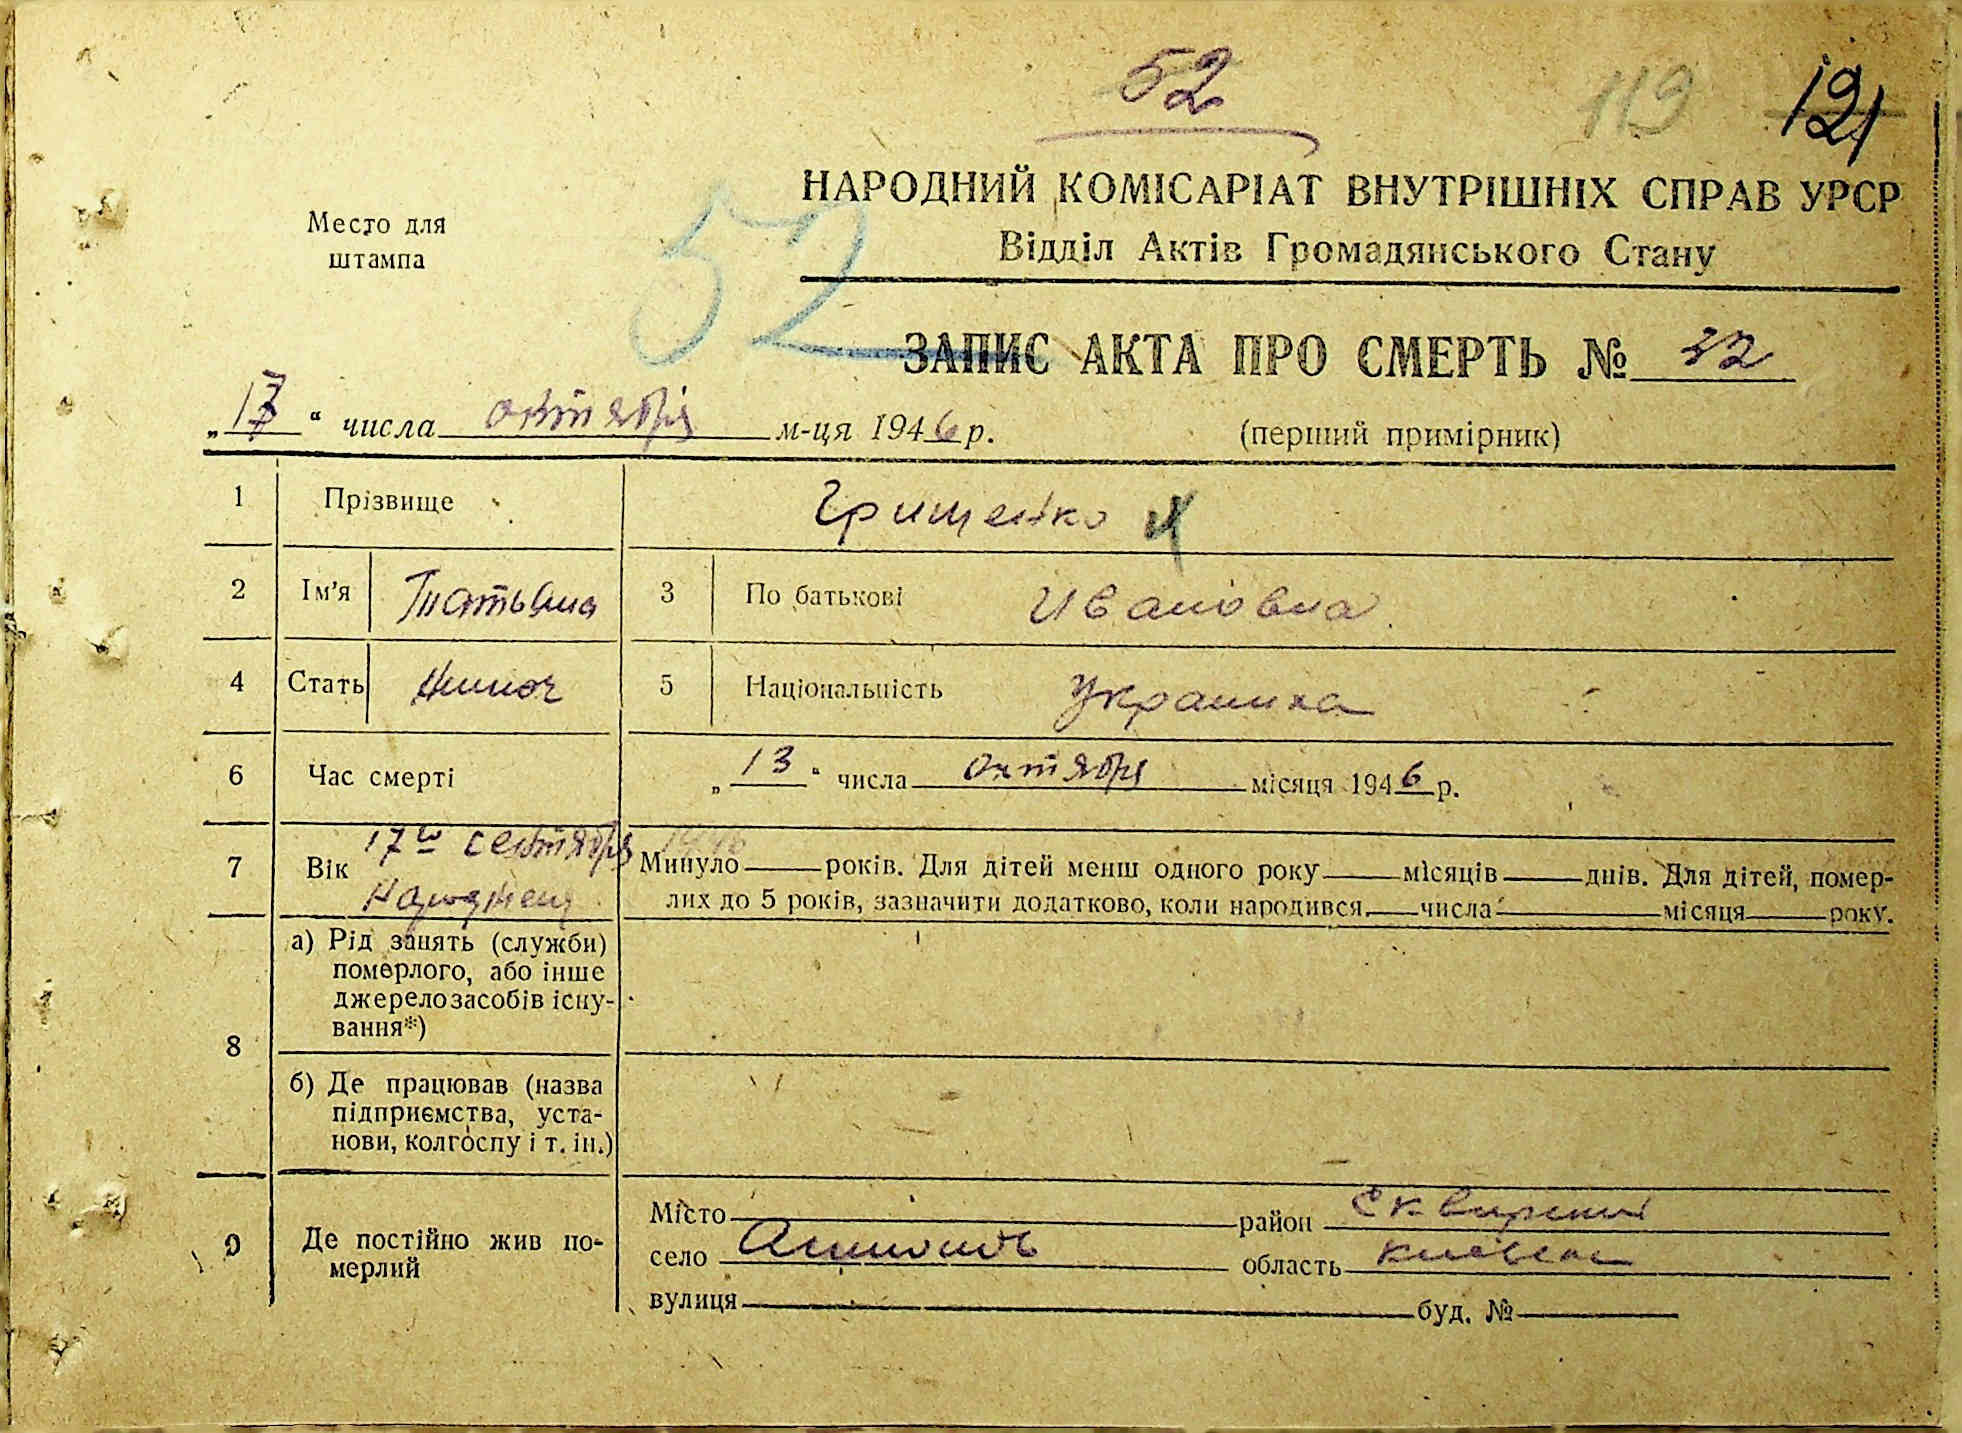 52
119 121
НАРОДНИЙ КОМІСАРІАТ ВНУТРІШНІХ СПРАВ УРСР
Место для
штампа
Відділ Актів Громадянського Стану
52
ЗАПИС АКТА ПРО СМЕРТЬ № 32
„17“ числа октября м-ця 1946 р.
(перший примірник)
1 Прізвище Грищенко
2 Ім'я Татьяна 3 По батькові Ивановна
4 Стать 5 Національність Украинка
6 Час смерті „13“ числа октября місяця 1946 р.
7 Вік 17го сентября 1946
Минуло років. Для дітей менш одного року місяців днів. Для дітей, помер-
лих до 5 років, зазначити додатково, коли народився, числа місяця року.
8 а) Рід занять (служби)
померлого, або інше
джерело засобів існу-
вання*)
б) Де працював (назва
підприємства, уста-
нови, колгоспу і т. ін.)
9 Де постійно жив по-
мерлий
Місто район Сквирский
село область
вулиця буд. №